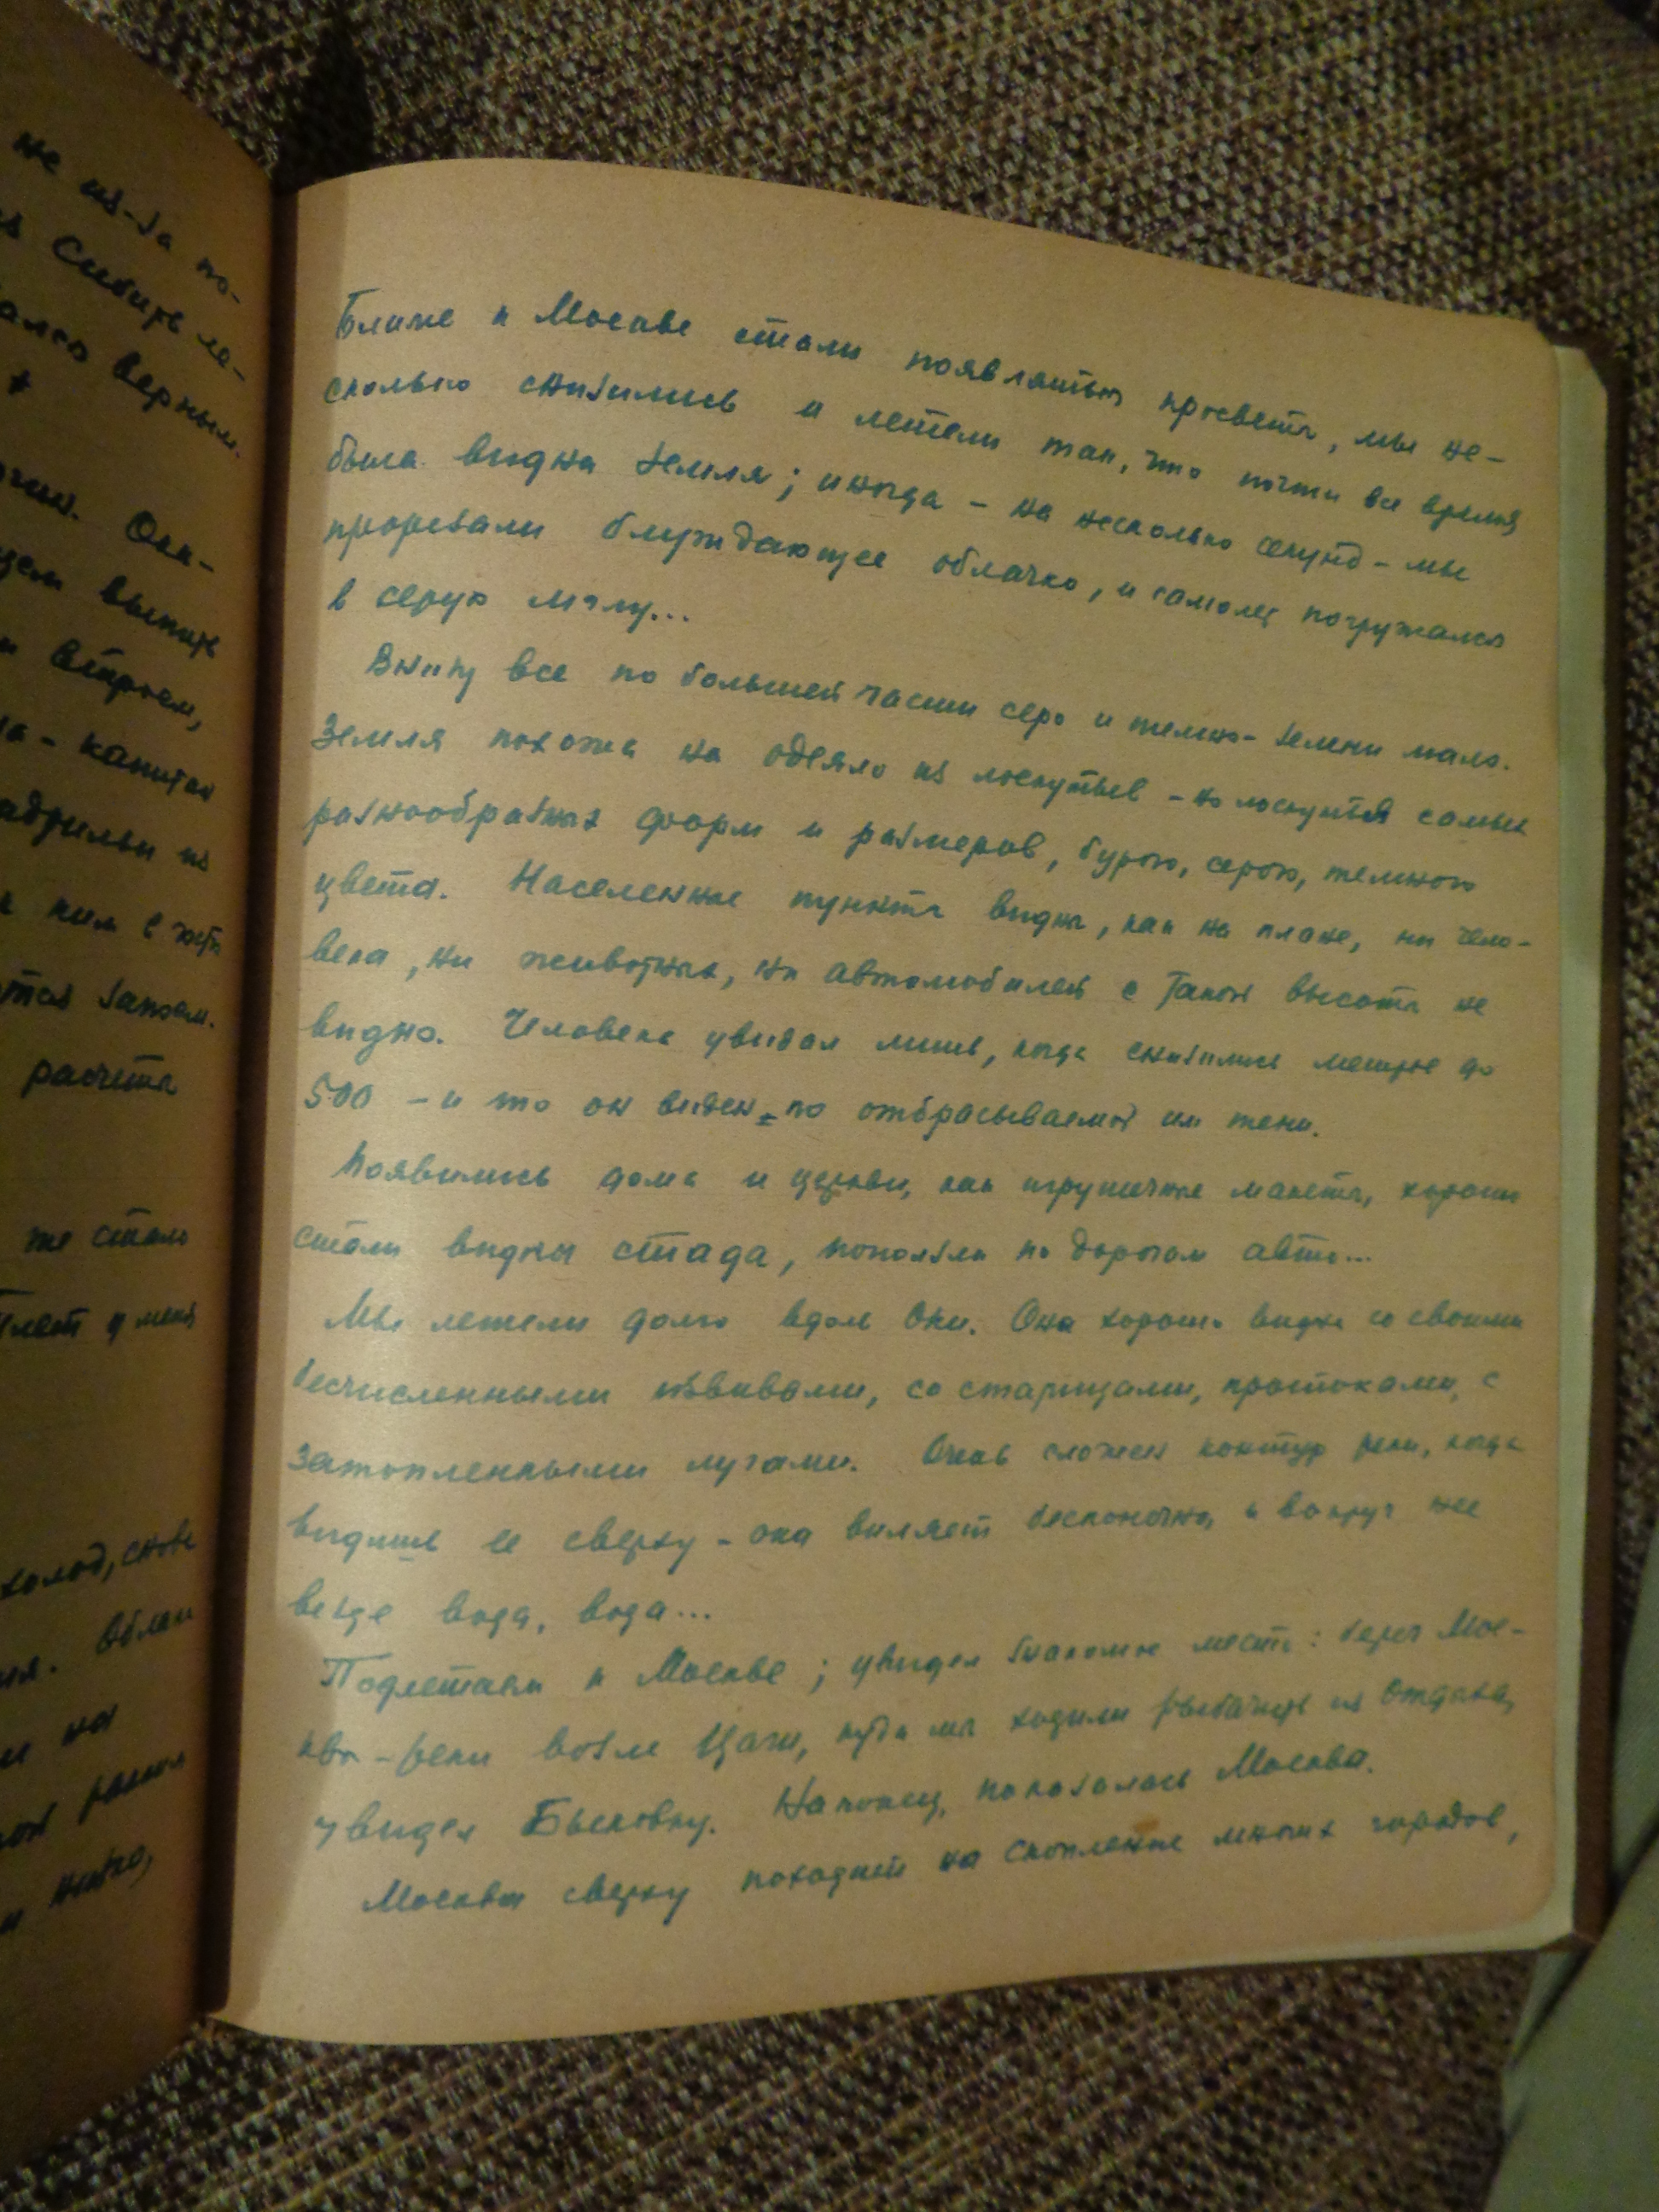 не из-за по-
Сибирь ле-
ался верным.
Ока-
выпить
встрою,
на - капитан
с ним в
запоем.
расчета
же стало
у меня
холод, снова
Облака
и на
Ближе к Москве стали появляться просветы, мы не-
сколько снизились и летели так, что почти все время
была видна земля; иногда - на несколько секунд - мы
прорезали блуждающее облачко, и самолет погружался
в серую мглу...
Внизу все по большей части серо и темно - зелени мало.
Земля похожа на одеяло из лоскутьев - но лоскутья самых
разнообразных форм и размеров, бурого, серого, темного
цвета. Населенные пункты видны, как на плане, ни чело-
века, ни животных, ни автомобилей с такой высоты не
видно. Человека увидал лишь, когда снизились метров до
500 - и то он виден - по отбрасываемой им тени.
Появились дома и церкви, как игрушечные макеты, хорошо
стали видны стада, поползли по дорогам авто...
Мы летели долго вдоль Оки. Она хорошо видна со своими
бесчисленными извивами, со старицами, протоками, с
затопленными лугами. Очень сложен контур реки, когда
видишь ее сверху - она виляет бесконечно, и вокруг нее
везде вода, вода...
Подлетаем к Москве; увидел знакомые места: берег Мос-
квы-реки возле Цаги, куда мы ходили рыбачить из Отдыха,
увидел Быковку. Наконец, показалась Москва.
Москва сверху походит на скопление многих городов,